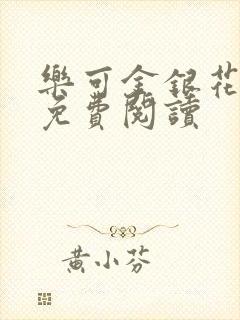 樂可金銀花
免費閱讀
黃小芬